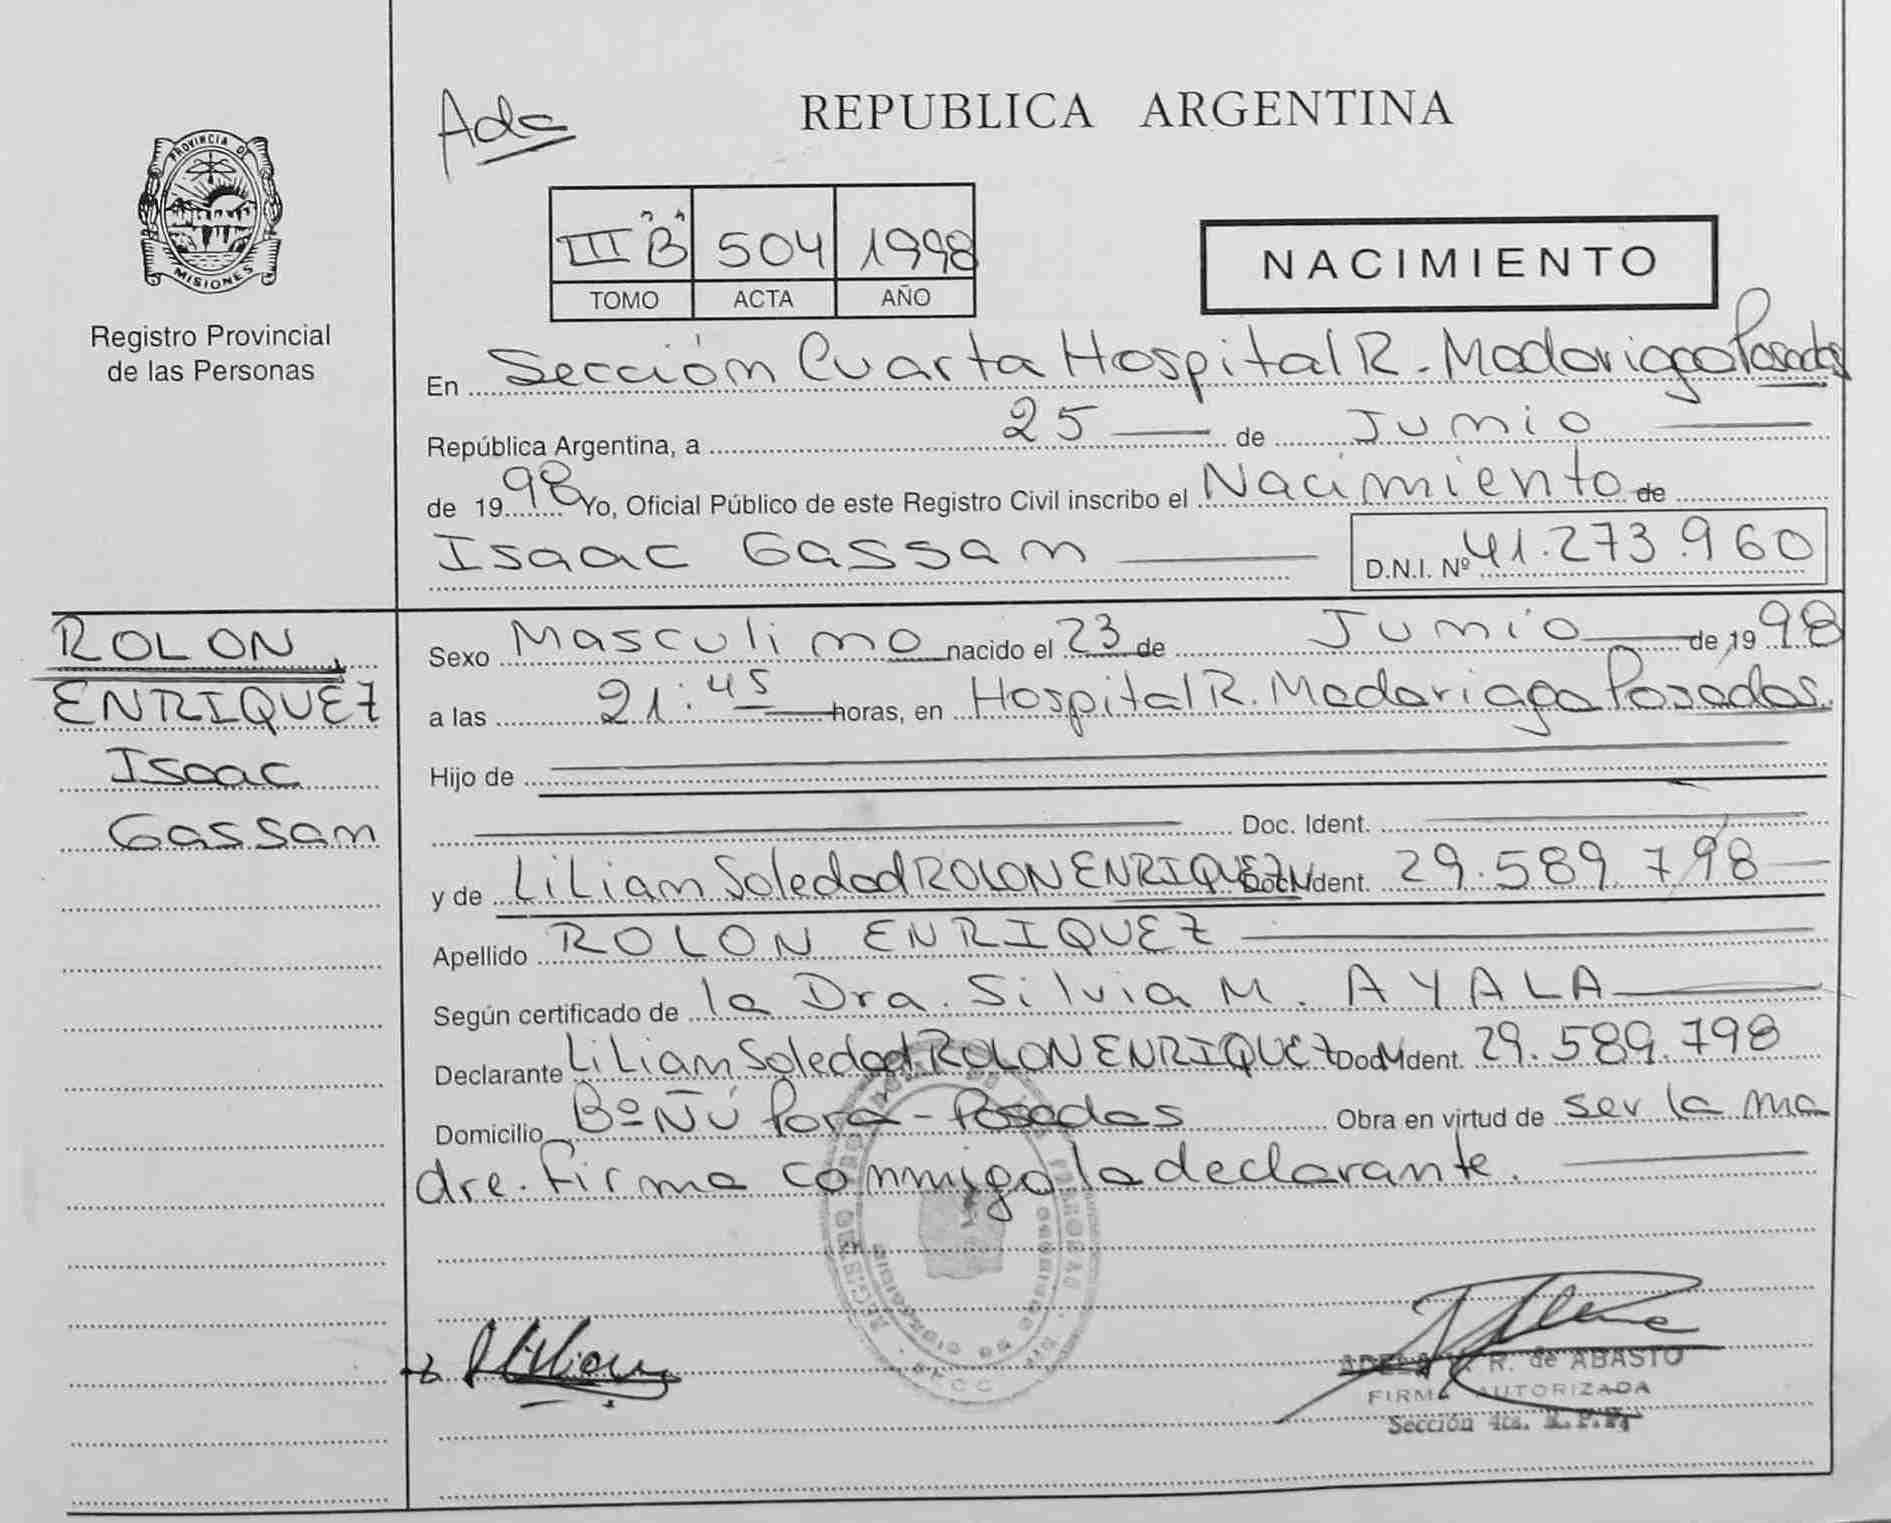 Ada
REPUBLICA ARGENTINA
PROVINCIA DE MISIONES
Registro Provincial
de las Personas
III B 504 1998
TOMO ACTA AÑO
NACIMIENTO
En Sección Cuarta Hospital R. Madariaga Posadas
República Argentina, a 25 de Junio
de 1998 Yo, Oficial Público de este Registro Civil inscribo el Nacimiento de
Isaac Gassan D.N.I. Nº 41.273.960
ROLON
ENRIQUEZ
Isaac
Gassan
Sexo Masculino nacido el 23 de Junio de 1998
a las 21:45 horas, en Hospital R. Madariaga Posadas.
Hijo de
Doc. Ident.
y de Liliam Soledad ROLON ENRIQUEZ Doc. Ident. 29.589.798
Apellido ROLON ENRIQUEZ
Según certificado de la Dra. Silvia M. AYALA
Declarante Liliam Soledad ROLON ENRIQUEZ Doc. Ident. 29.589.798
Domicilio Bº Ñú Porá - Posadas Obra en virtud de ser la ma
dre. Firma conmigo la declarante.
R. de ABASTO
FIRMA AUTORIZADA
Sección 4ta. R.P.P.